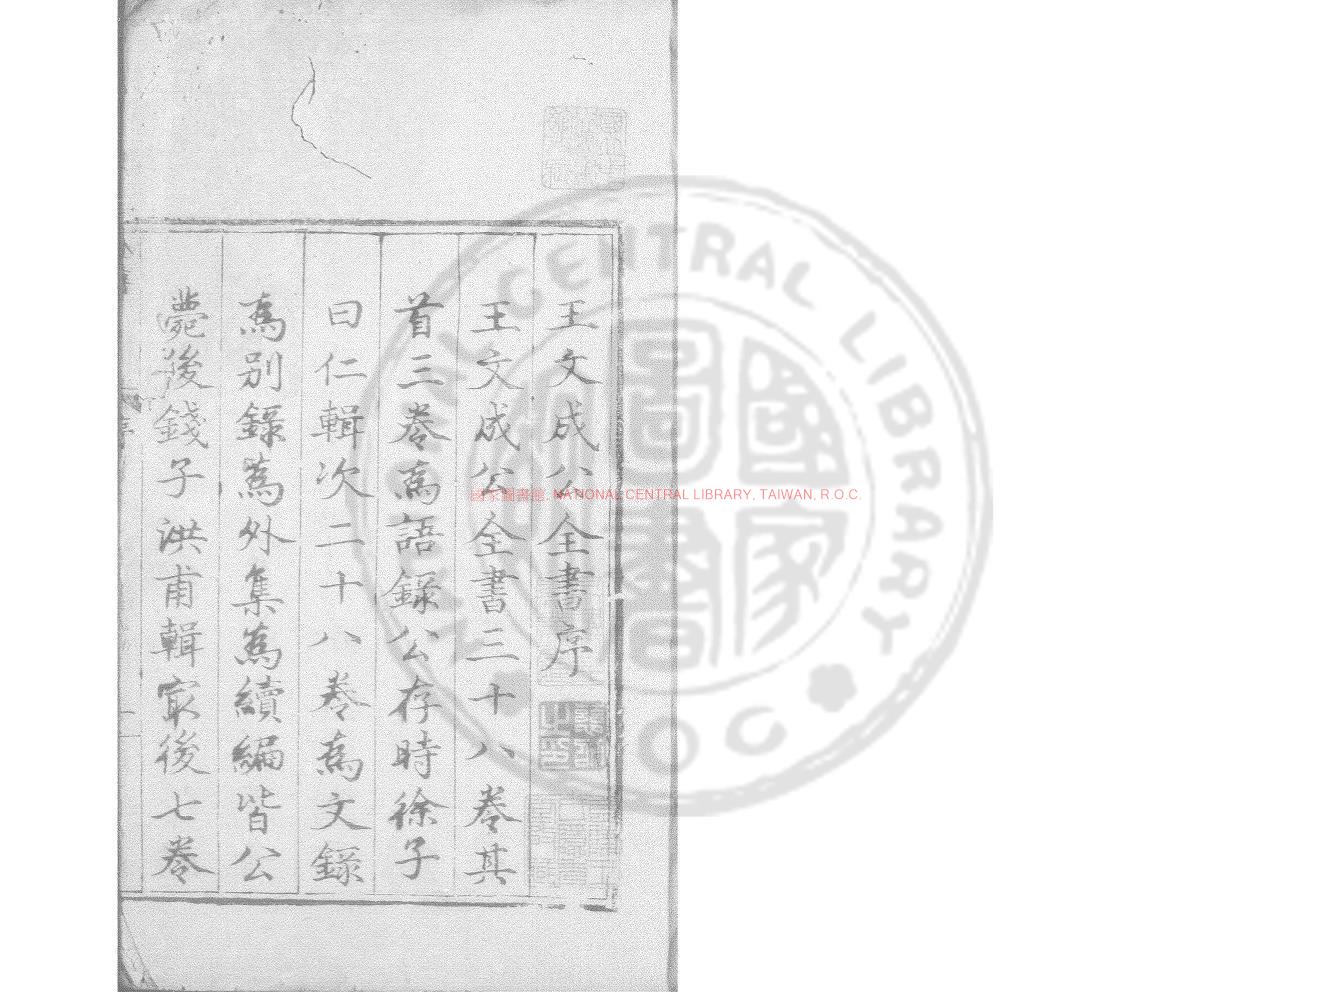 王文成公全書序
王文成公全書三十八卷其
首三卷為語錄公存時徐子
曰仁輯次二十八卷為文錄
為別錄為外集為續編皆公
薨後錢子洪甫輯冣後七卷
國家圖書館, NATIONAL CENTRAL LIBRARY, TAIWAN, R.O.C.
CENTRAL LIBRARY
國家圖書